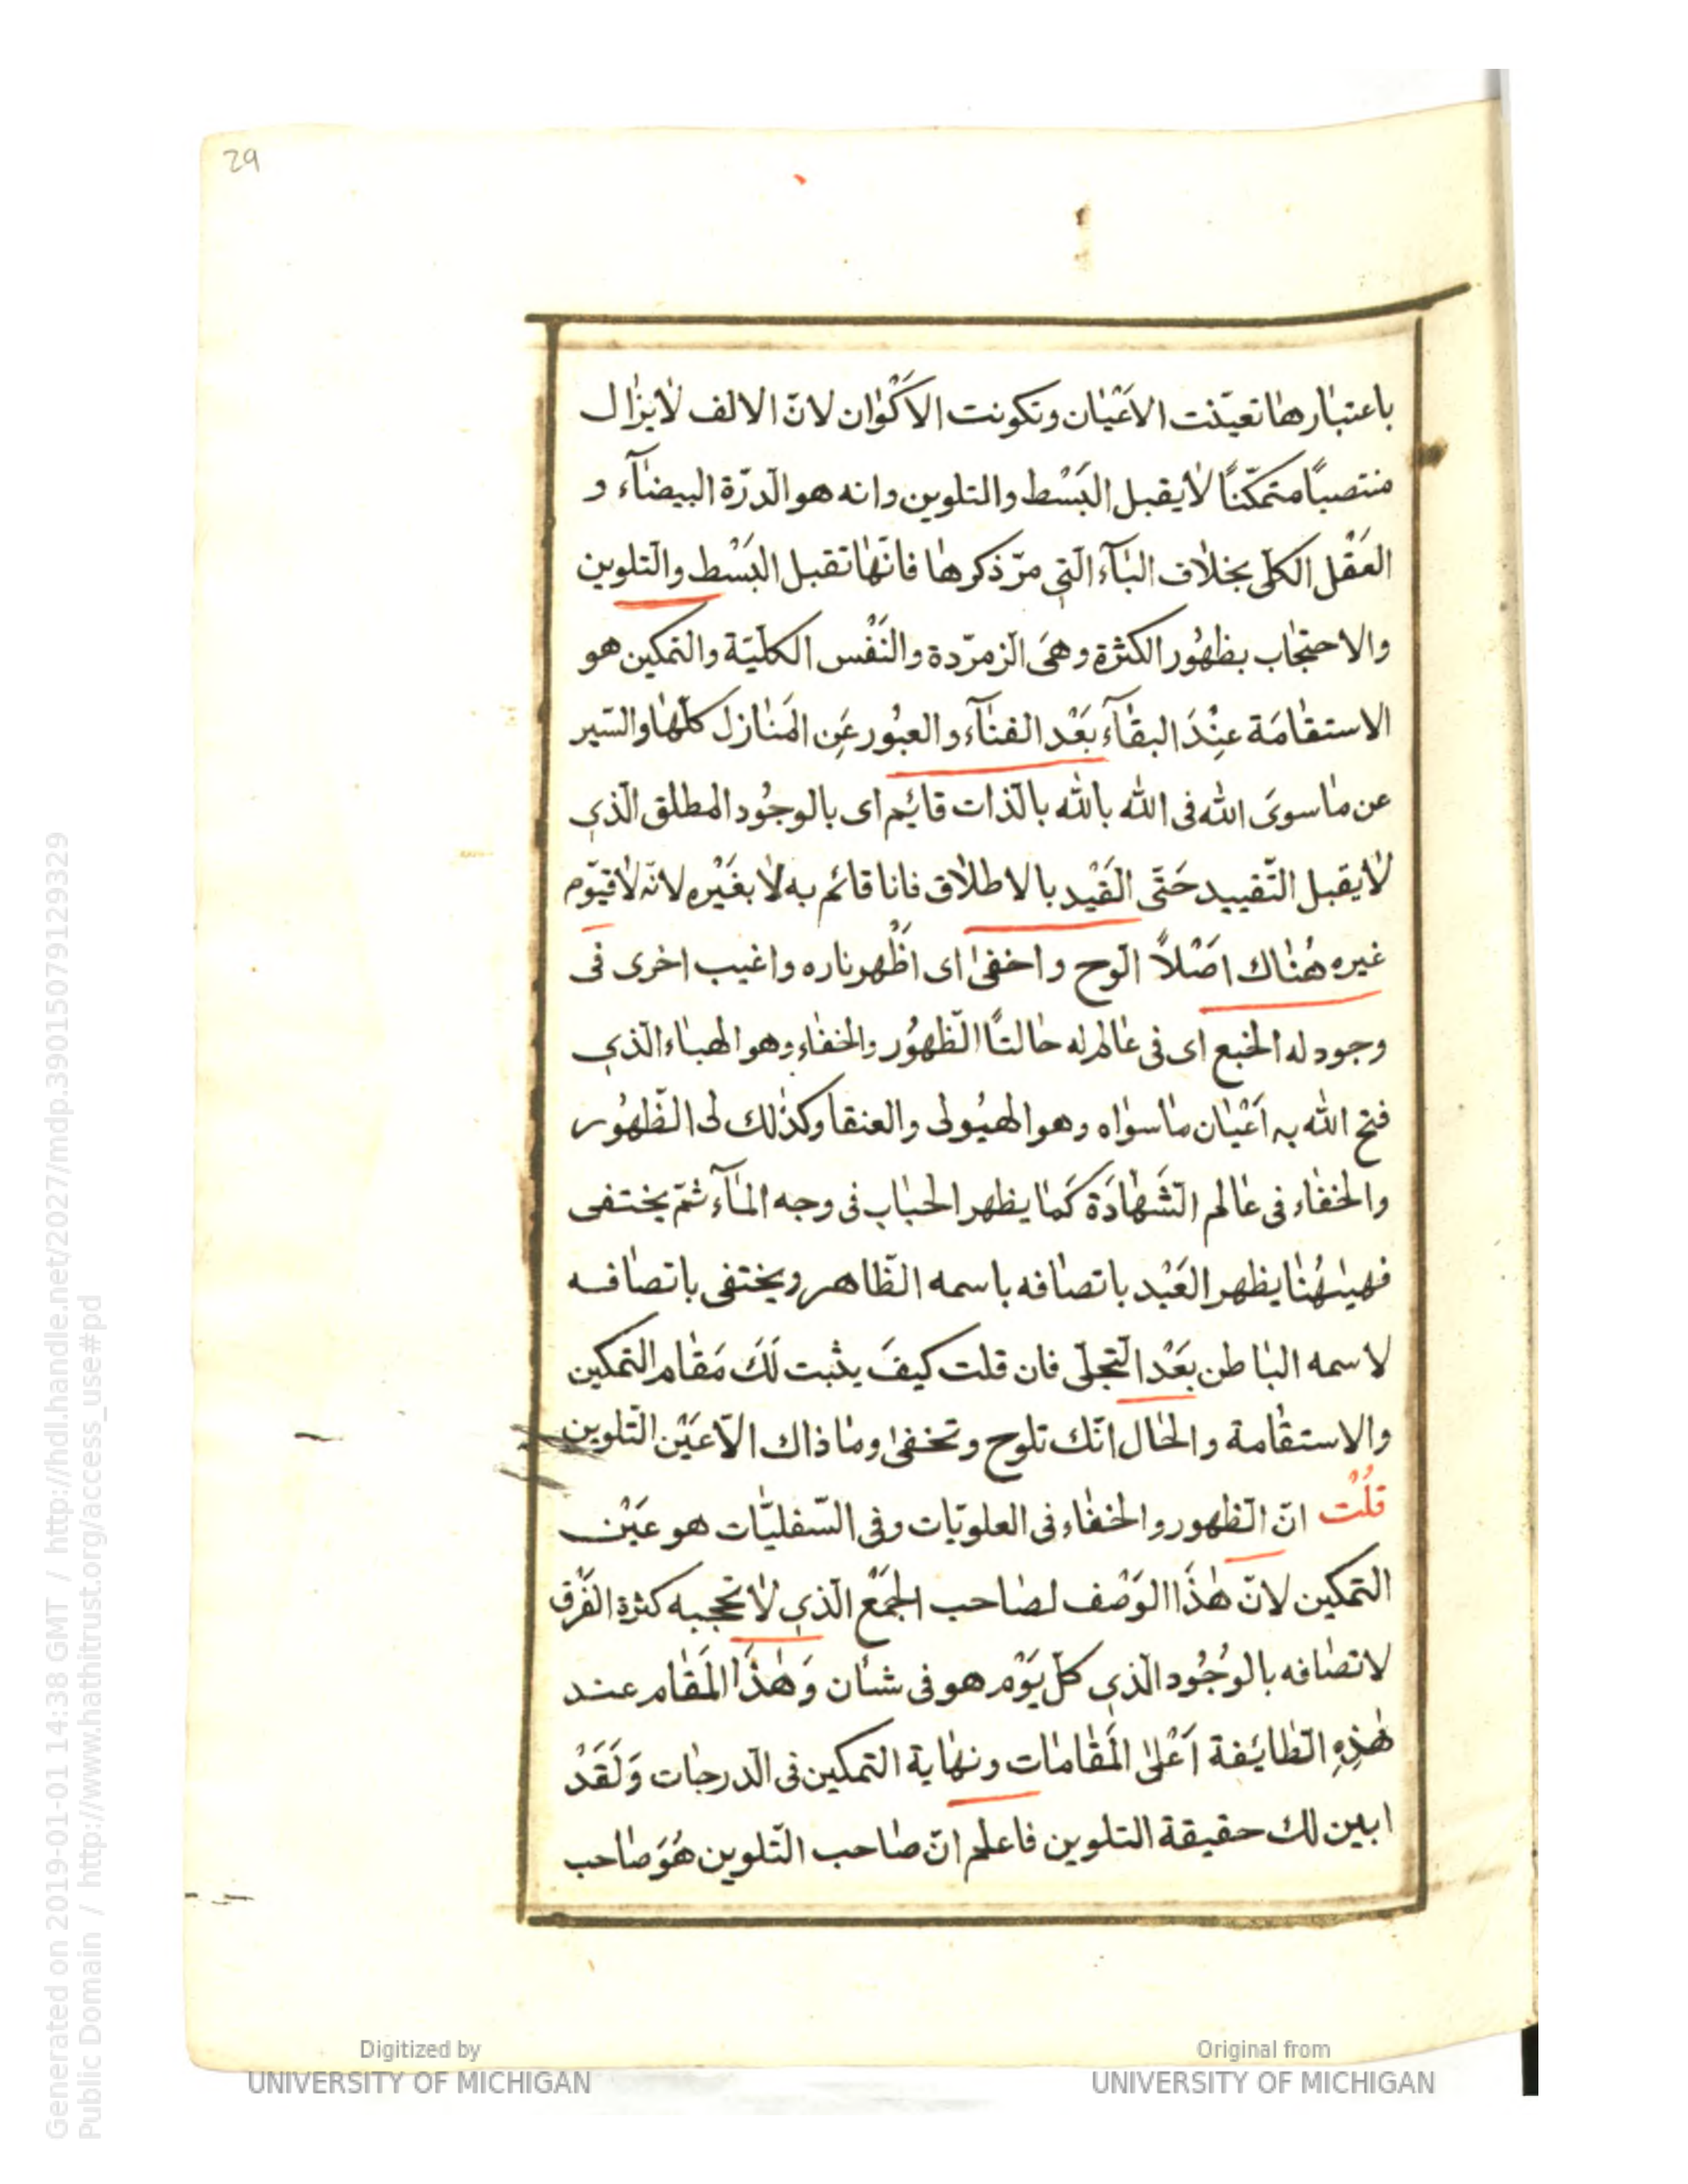 29
باعتبٰارهٰا تعيّنت الاَعْيٰان وتكونت الاَكْوٰان لانّ الالف لٰايزٰال
منتصبًا متمكّنًا لٰايقبل البَسْط والتلوين وانه هو الدرّة البيضٰآء و
العَقْل الكلّى بخلٰاف البٰآء الّتى مرّ ذكرهٰا فانّهٰا تقبل البَسْط والتّلوين
والاحتجٰاب بظهُور الكثرة وهىَ الزمرّدة والنَفْس الكلّيّة والتمكين هو
الاستقٰامَة عنِْدَ البقٰآء بَعْد الفنٰآء والعبُور عَِن المَنٰازل كلّهٰا والسّير
عن مٰا سوىَ الله فى الله بالله بالذات قايُم اى بالوجُود المطلق الّذى
لٰايقبل التّقييد حَتّى القَيْد بالاطلٰاق فانا قائم به لٰا بغَيْره لانّه لٰا قيّوم
غيره هُنٰاك اصَْلاً الوح واخفىٰ اى اظْهر ناره واغيب اخرى فى
وجود له الخبع اى فى عٰالم له حٰالتًا الظّهُور والخفٰاء وهو الهبٰاء الّذى
فتح الله به اَعْيٰان مٰا سوٰاه وهو الهيُولى والعنقا وكذٰلك لى الظّهُور
والخفٰاء فى عٰالم الشَّهٰادَة كَمٰا يظهر الحبٰاب فى وجه المٰآء ثمّ يختفى
فهيٰهُنٰا يظهر العَبْد باتصٰافه باسمه الظّاهر ويختفى باتصٰافه
لاسمه البٰاطن بَعْد التّجلّى فان قلت كيفَ يثبت لَكَ مَقٰام التمكين
والاستقٰامة والحٰال انّك تلوح وتخفىٰ ومٰا ذاك الّا عَيْن التّلوين
قلُْت انّ الظّهور والخفٰاء فى العلويّات وفى السّفليّٰات هو عَيْن
التمكين لانّ هٰذَا الوَصْف لصٰاحب الجَمْع الّذى لٰا تحجبه كثرة الفَرْق
لاتصٰافه بالوجُُود الّذى كلّ يَوْم هو فى شأن وَهٰذَا المَقٰام عند
هٰذِهِ الطّايُفة اَعْلىٰ المَقٰامٰات ونهٰاية التمكين فى الدرجٰات وَلَقَدْ
ابين لك حقيقة التلوين فاعلم انّ صٰاحب التّلوين هُوَ صٰاحب
Generated on 2019-01-01 14:38 GMT / http://hdl.handle.net/2027/mdp.39015079129329
Public Domain / http://www.hathitrust.org/access_use#pd
Digitized by
UNIVERSITY OF MICHIGAN
Original from
UNIVERSITY OF MICHIGAN